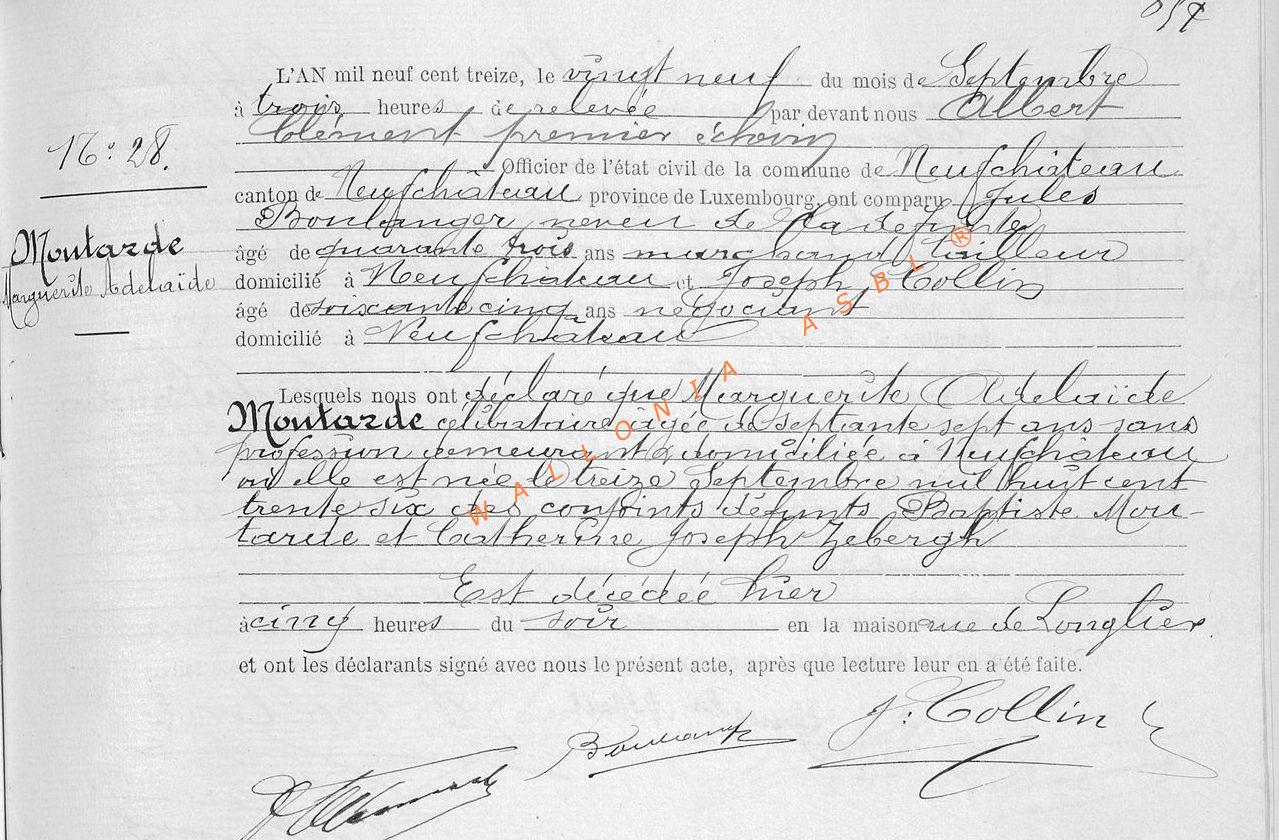 L'AN mil neuf cent treize, le vingt neuf du mois de Septembre
à trois heures de relevée par devant nous Albert
Clément premier échevin
Nº 28.
Officier de l'état civil de la commune de Neufchâteau
canton de Neufchâteau province de Luxembourg, ont comparu Jules
Boulanger neveu de la defunte
Moutarde
Marguerite Adelaïde
âgé de quarante trois ans marchand tailleur
domicilié à Neufchâteau et Joseph Collin
âgé de soixante cinq ans négociant
domicilié à Neufchâteau
Lesquels nous ont déclaré que Marguerite Adelaïde
Moutarde célibataire âgée de septante sept ans sans
profession demeurant & domiciliée à Neufchâteau
où elle est née le treize Septembre mil huit cent
trente six des conjoints défunts Baptiste Mou-
tarde et Catherine Joseph Zebergh
Est décédée hier
à cinq heures du soir en la maison rue de Longlier.
et ont les déclarants signé avec nous le présent acte, après que lecture leur en a été faite.
J. Collin
WALLONIA ASBL ®